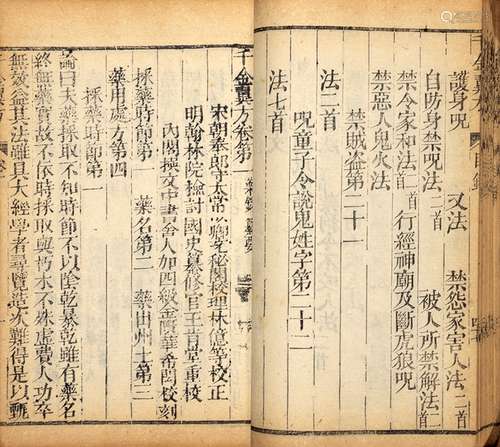 千金翼方 目錄
護身呪 又法 禁怨家害人法二首
自防身禁呪法二首 被人所禁解法一首
禁令家和法二首 行經神廟及斷虎狼呪
禁惡人鬼火法
禁賊盜第二十一
法二首
呪童子令說鬼姓字第二十二
法七首
千金翼方卷第一 藥錄纂要
宋朝奉郎守太常少卿充秘閣校理林億等校正
明翰林院檢討國史纂修官王肯堂重校
內閣撰文中書舍人加四級金匱華希閎校刻
採藥時節第一 藥名第二 藥出州土第三
藥用處方第四
採藥時節第一
論曰夫藥採取不知時節不以陰乾暴乾雖有藥名
終無藥實故不依時採取與朽木不殊虛費人功卒
無益其法雖具大經學者尋覽造次難得是以甄